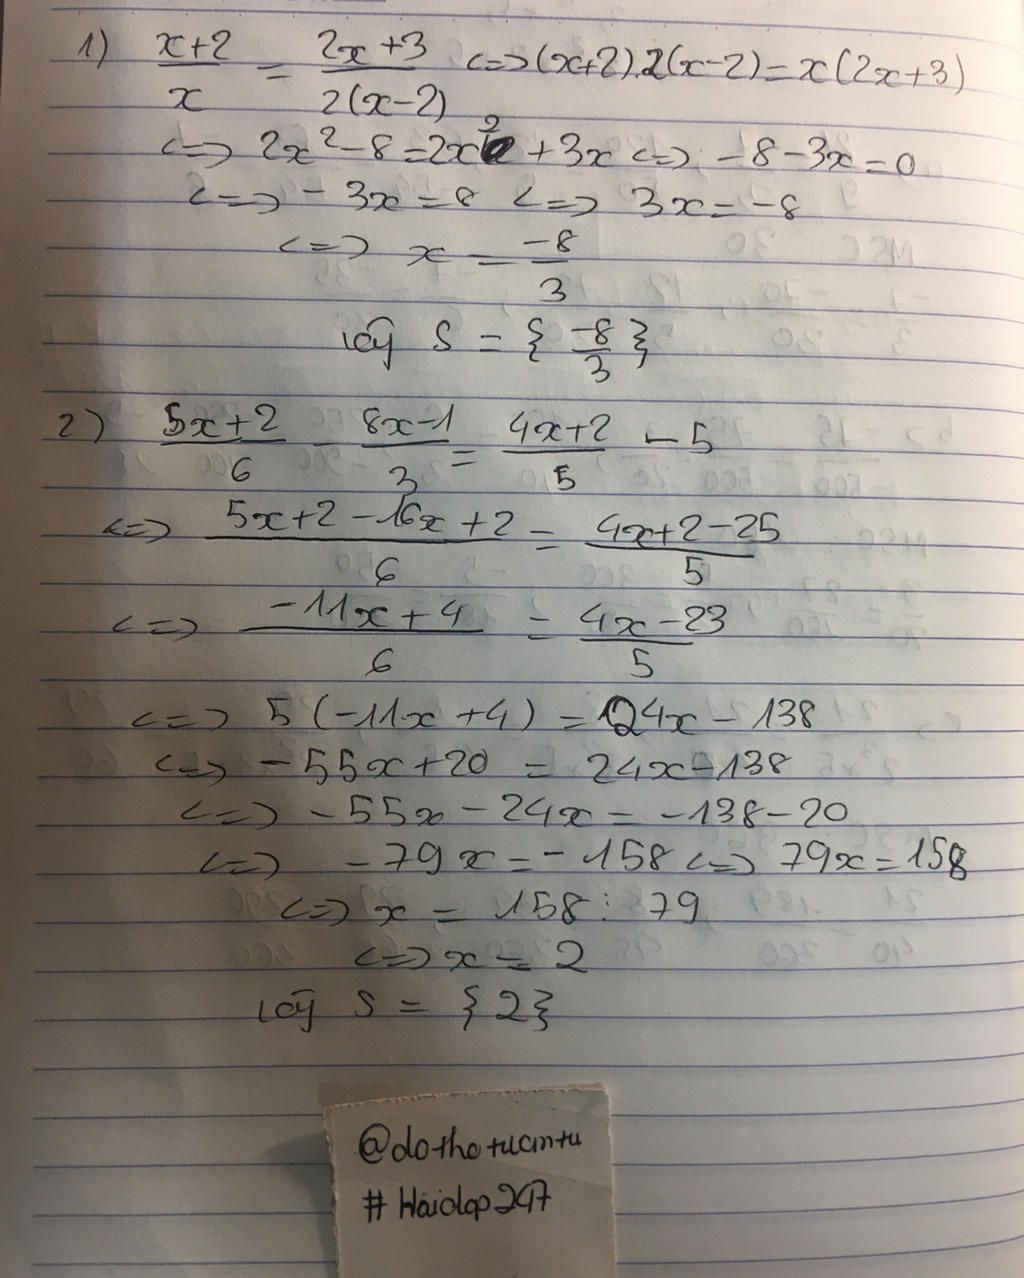 1) \frac{x+2}{x} = \frac{2x+3}{2(x-2)} <=> (x+2).2(x-2) = x(2x+3)
<=> 2x² - 8 = 2x² + 3x <=> -8 - 3x = 0
<=> -3x = 8 <=> 3x = -8
<=> x = \frac{-8}{3}
Vậy S = { \frac{-8}{3} }
2) \frac{5x+2}{6} - \frac{8x-1}{3} = \frac{4x+2}{5} - 5
<=> \frac{5x+2-16x+2}{6} = \frac{4x+2-25}{5}
<=> \frac{-11x+4}{6} = \frac{4x-23}{5}
<=> 5(-11x+4) = 24x - 138
<=> -55x+20 = 24x-138
<=> -55x - 24x = -138-20
<=> -79x = -158 <=> 79x = 158
<=> x = 158 : 79
<=> x = 2
Vậy S = {2}
@dothotuantu
#Hoidap247